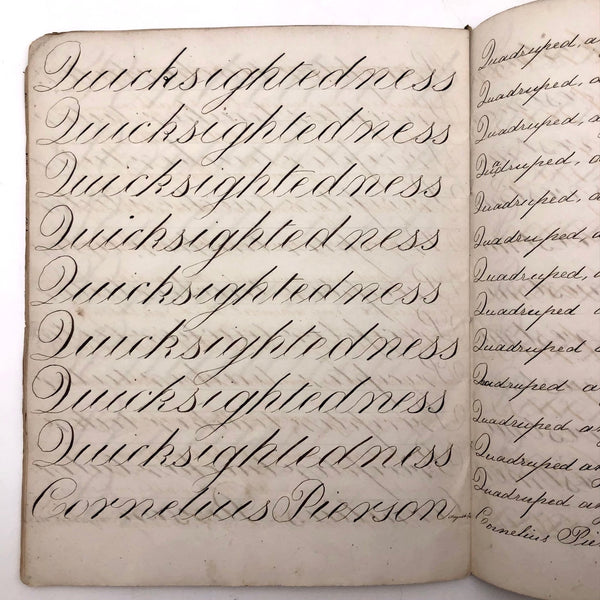 Quicksightedness
Quicksightedness
Quicksightedness
Quicksightedness
Quicksightedness
Quicksightedness
Quicksightedness
Quicksightedness
Cornelius Pierson
Quadruped, a
Quadruped, a
Quadruped, a
Quadruped, a
Quadruped, a
Quadruped a
Quadruped,
Quadruped a
Quadruped a
Quadruped a
Quadruped an
Quadruped an
Quadruped an
Cornelius Pie